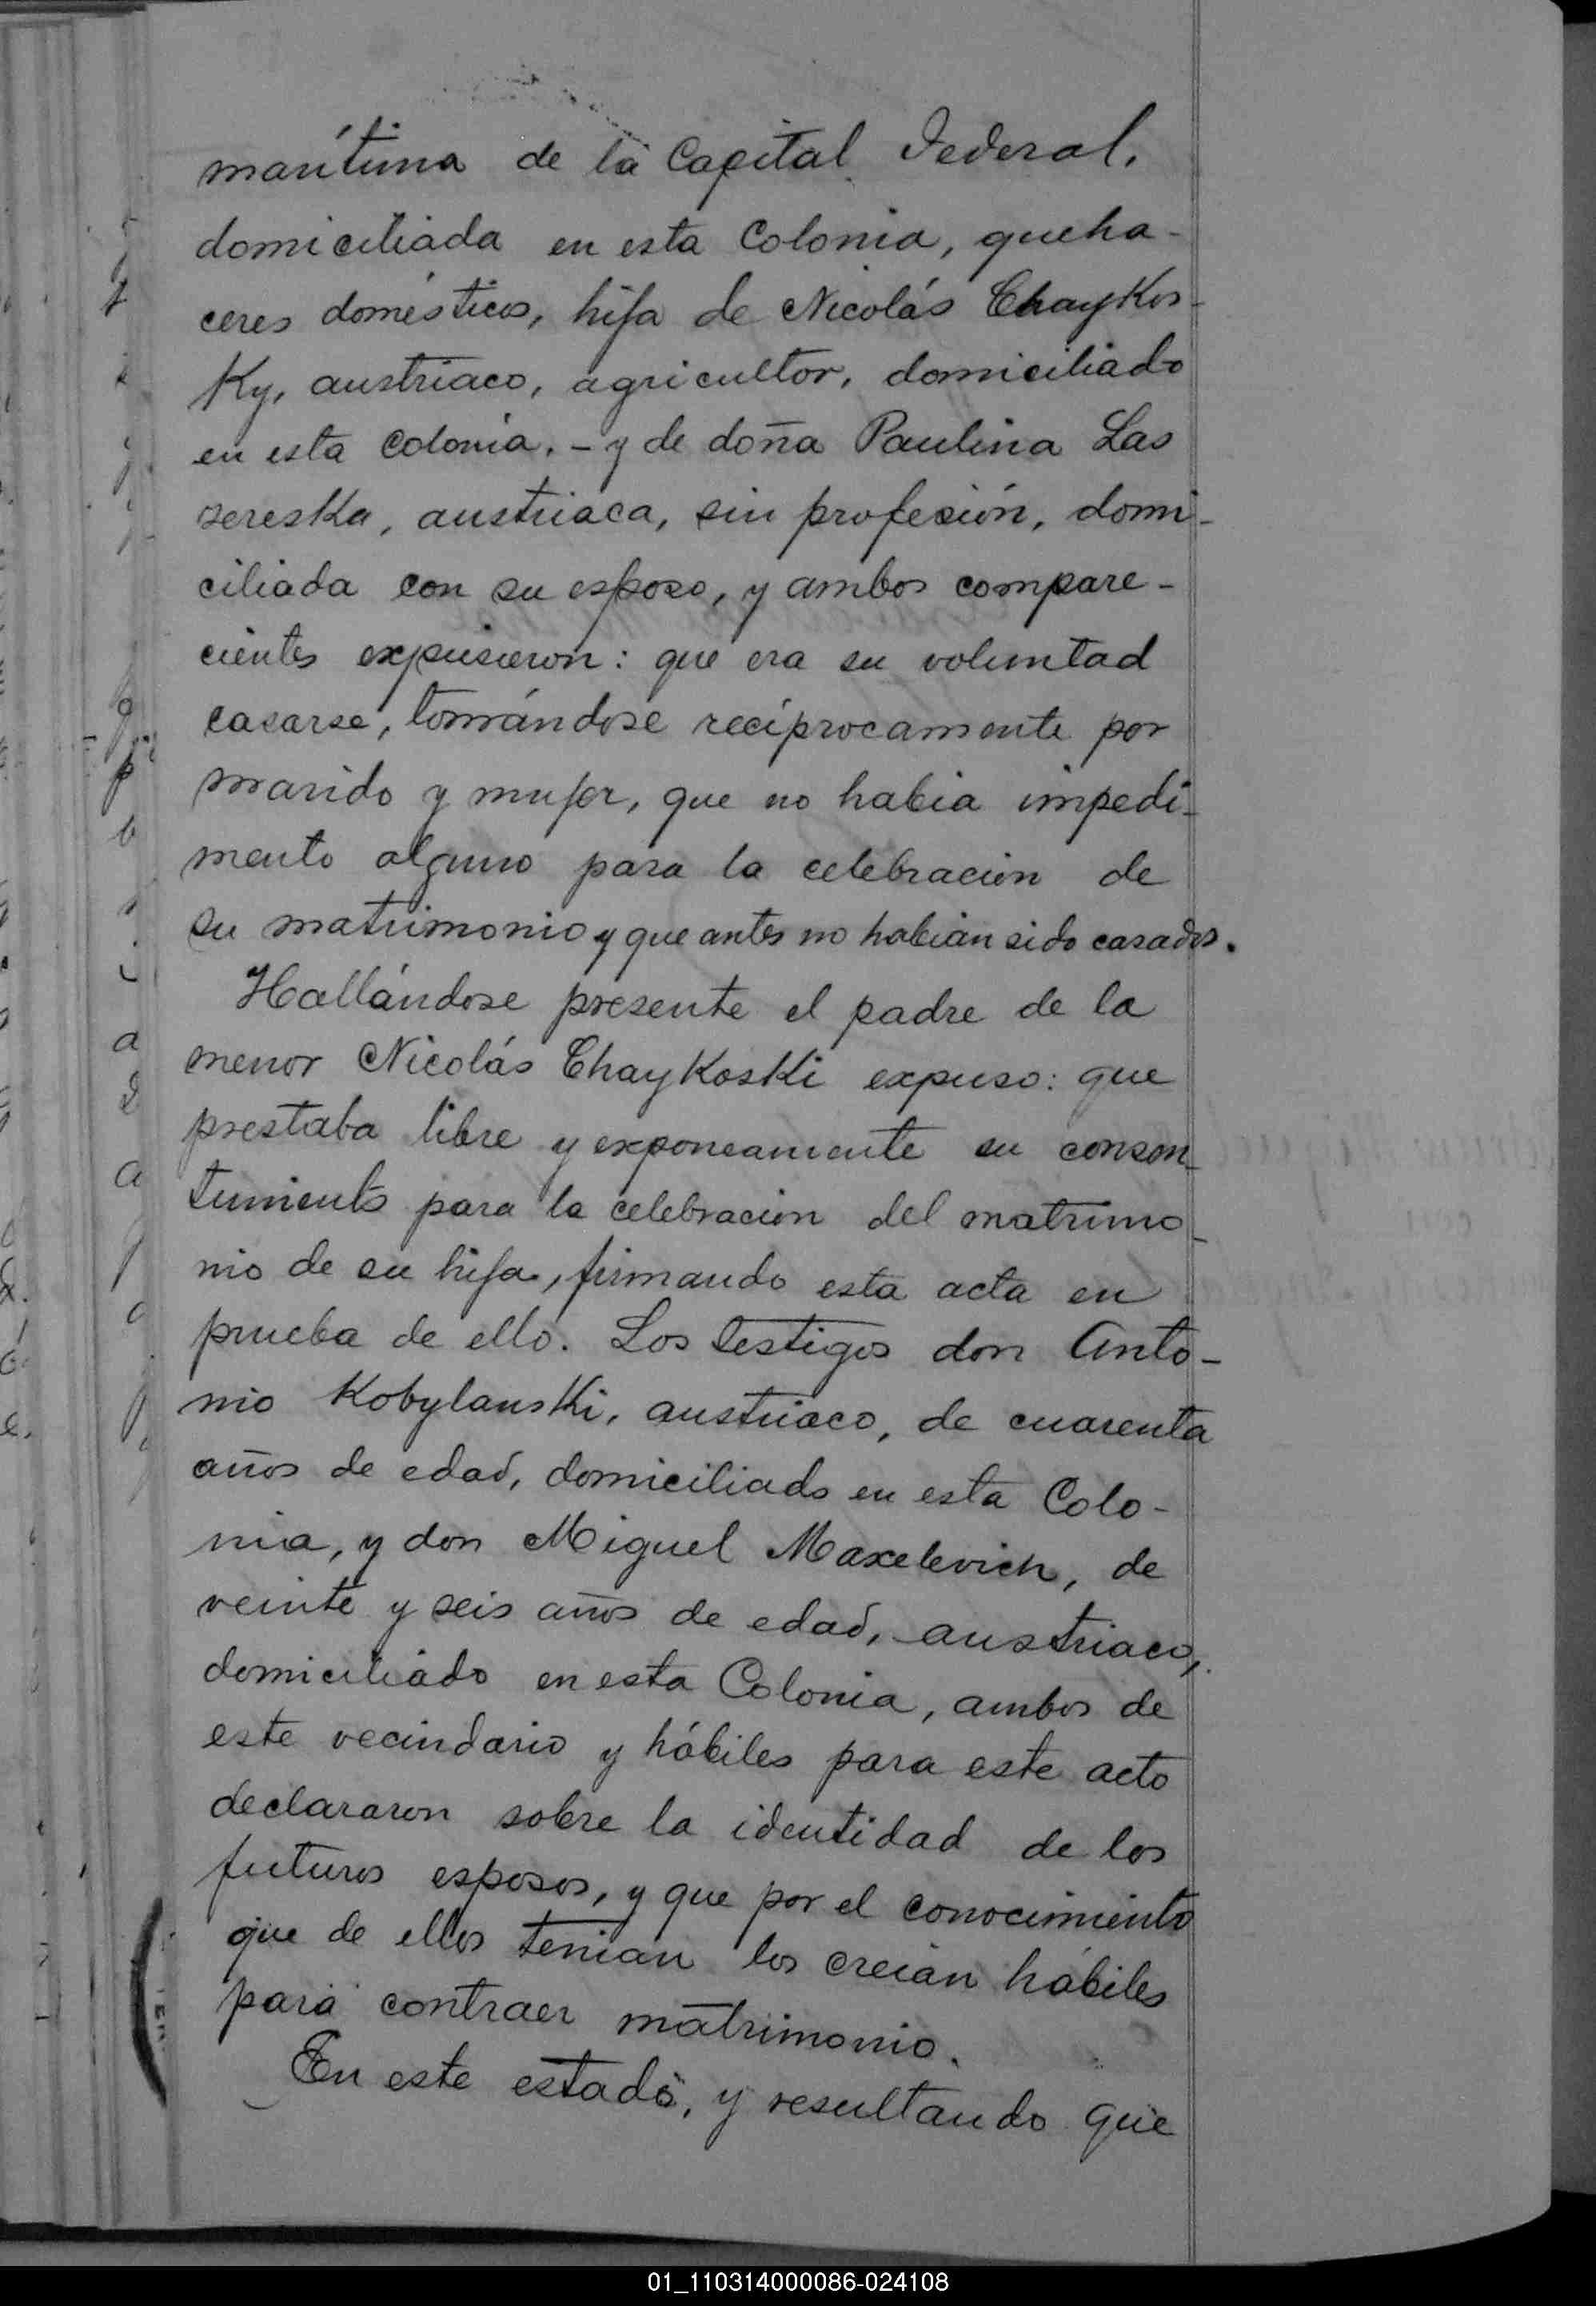 marítima de la Capital Federal,
domiciliada en esta Colonia, queha-
ceres domésticos, hija de Nicolás Chaykos-
ky, austriaco, agricultor, domiciliado
en esta Colonia. - y de doña Paulina Las
sereska, austriaca, sin profesión, domi-
ciliada con su esposo, y ambos compare-
cientes expusieron: que era su voluntad
casarse, tomándose recíprocamente por
marido y mujer, que no habia impedi-
mento alguno para la celebración de
su matrimonio y que antes no habian sido casados.
Hallándose presente el padre de la
menor Nicolás Chaykoski expuso: que
prestaba libre y exponeamente su consen-
timiento para la celebración del matrimo-
nio de su hija, firmando esta acta en
prueba de ello. Los testigos don Anto-
nio Kobylanski, austriaco, de cuarenta
años de edad, domiciliado en esta Colo-
nia, y don Miguel Maxelevich, de
veinte y seis años de edad, austriaco,
domiciliado en esta Colonia, ambos de
este vecindario y hábiles para este acto
declararon sobre la identidad de los
futuros esposos, y que por el conocimiento
que de ellos tenian los creian hábiles
para contraer matrimonio.
En este estado, y resultando que
01_110314000086-024108